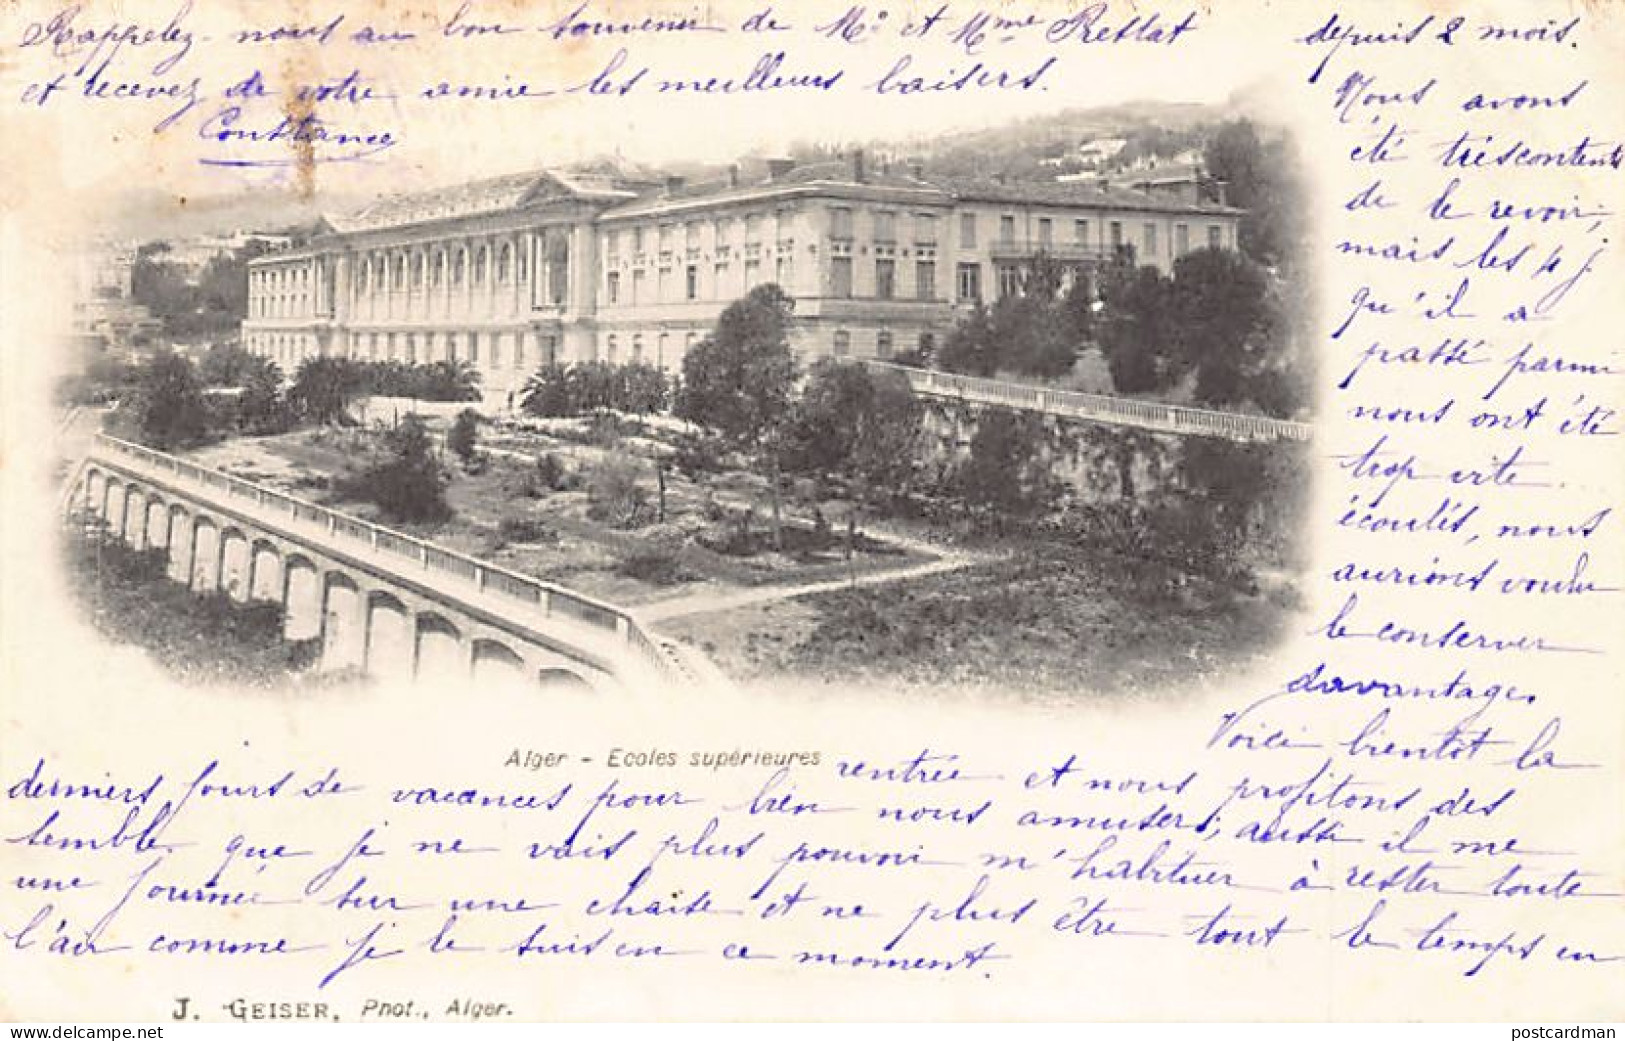 Rappelez-nous au bon souvenir de Mr et Mme Reslat
et recevez de votre amie les meilleurs baisers.
Constance
depuis 2 mois.
Nous avons
été très contents
de le revoir,
mais les 4 j.
qu'il a
passé parmi
nous ont été
trop vite
écoulés, nous
aurions voulu
le conserver
davantage.
Voici bientôt la
Alger - Ecoles supérieures
rentrée et nous profitons des
derniers jours de vacances pour bien nous amuser, aussi il me
semble que je ne vais plus pouvoir m'habituer à rester toute
une journée sur une chaise et ne plus être tout le temps en
l'air comme je le suis en ce moment.
J. GEISER, Phot., Alger.
www.delcampe.net
postcardman